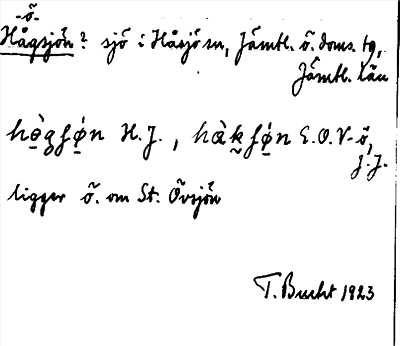 -ö-
Hågsjön? sjö i Håsjö sn, Jämtl. ö. doms. tg,
Jämtl. län
hə̀gʃǿn H. J., hàkʃǿn E. O. V-ö,
J. J.
ligger ö. om St. Övsjön
T. Bucht 1923